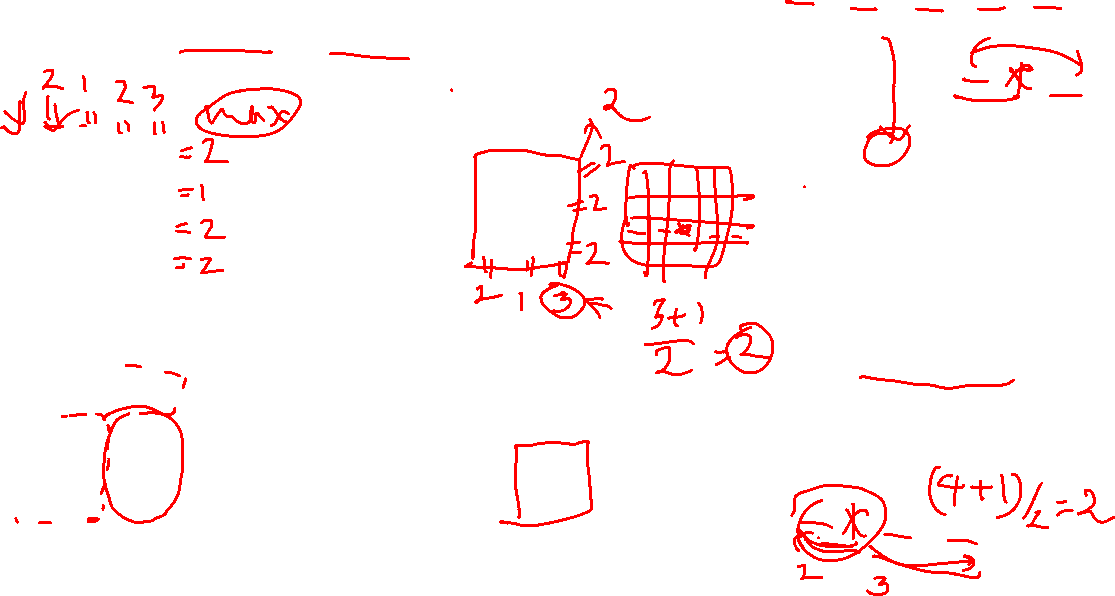 2 1 2 3
max
= 2
= 1
= 2
= 2
2
= 2
= 2
= 2
2 1 3
3+1
2
= 2
*
(4+1)/2 = 2
*
2 3